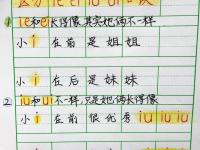 ① ie和ei长得像，其实她俩不一样
小 i 在前 是 姐 姐
小 i 在后 是 妹 妹
② iu和ui不一样，只是她俩长得像
小 i 在前 很 优 秀 iu iu iu